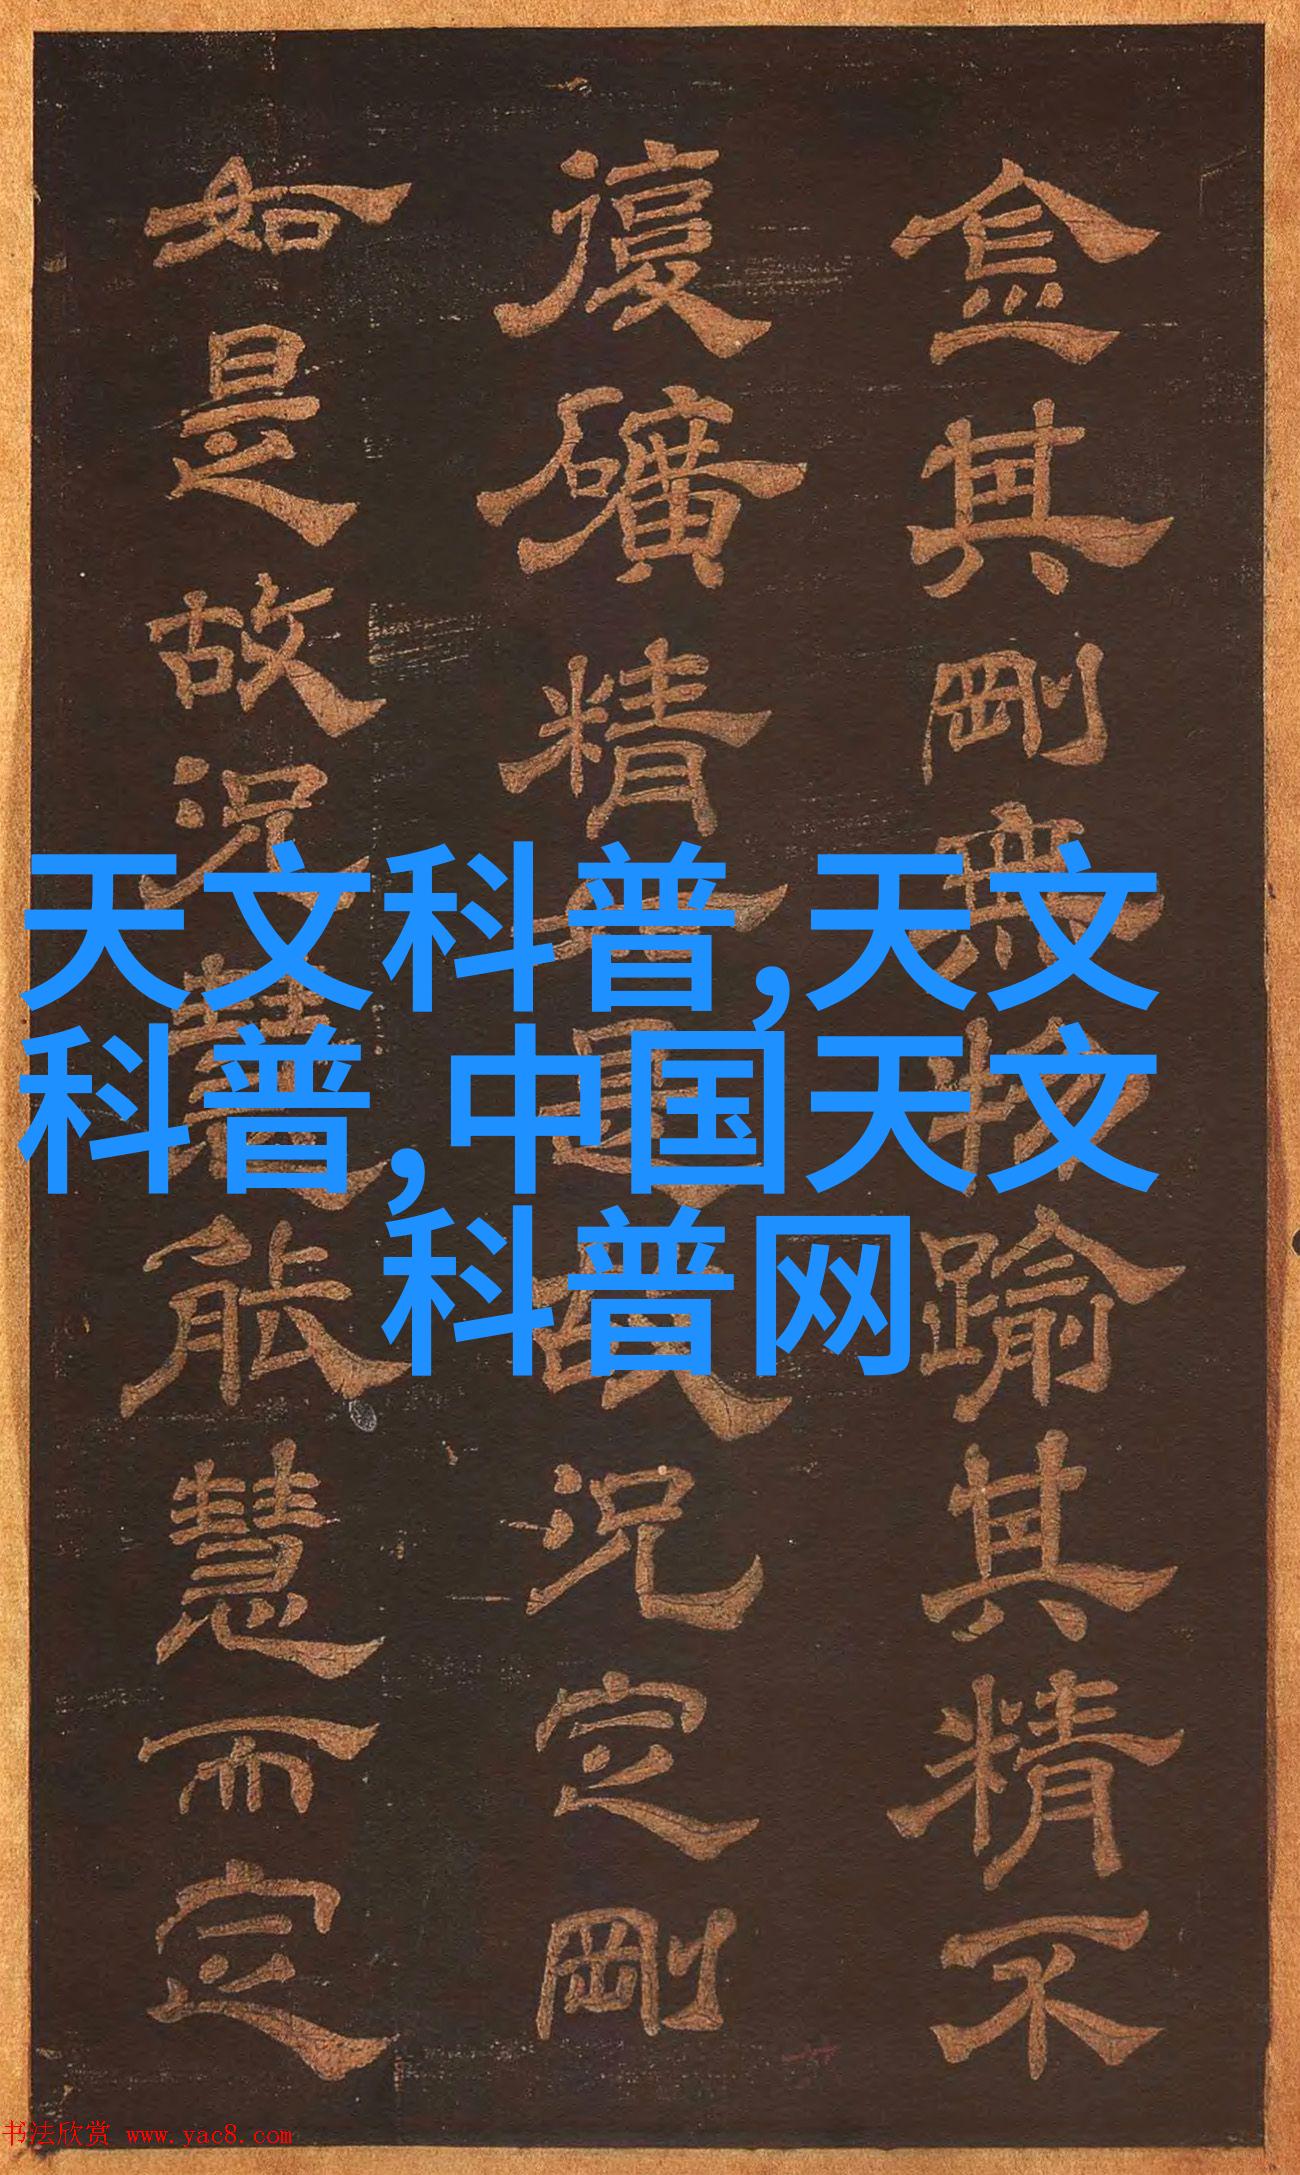 金其剛無物踰其精不
復礦精是故況定剛
如是故況慧能慧而定
天文科普,天文
科普,中国天文
科普网
书法欣赏 www.yac8.com